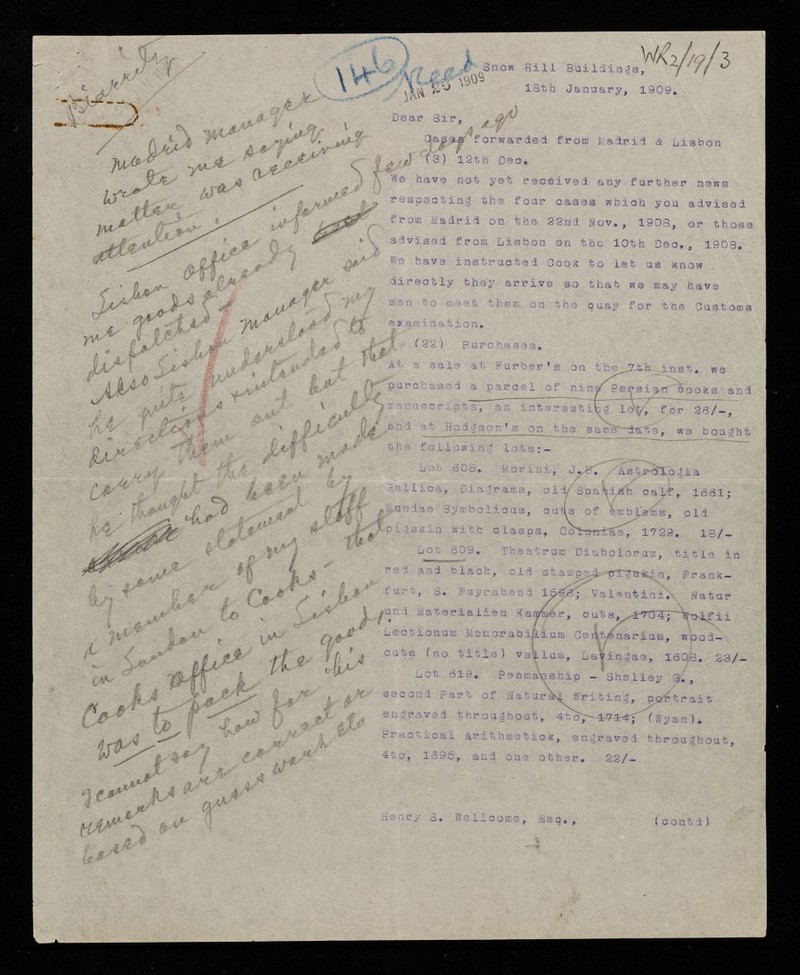 WR2/19/3
146
Read
JAN 23 1909
Snow Hill Buildings,
18th January, 1909.
Dear Sir,
Cases forwarded from Madrid & Lisbon
(3) 12th Dec.
We have not yet received any further news
respecting the four cases which you advised
from Madrid on the 22nd Nov., 1908, or those
advised from Lisbon on the 10th Dec., 1908.
We have instructed Cook to let us know
directly they arrive so that we may have
men to meet them on the quay for the Customs
examination.
(22) Purchases.
At a sale at Furber's on the 7th inst. we
purchased a parcel of nine Persian books and
manuscripts, an interesting lot, for 26/-,
and at Hodgson's on the same date, we bought
the following lots:-
Lot 608. Morini, J.B. Astrologia
Gallica, Diagrams, old Spanish calf, 1661;
Mundus Symbolicus, cuts of emblems, old
pigskin with clasps, Coloniae, 1729. 18/-
Lot 609. Theatrum Diabolorum, title in
red and black, old stamped pigskin, Frank-
furt, S. Feyrabend 1596; Valentini. Natur
und Materialien Kammer, cuts, 1704; Wolfii
Lectionum Memorabilium Centenarius, wood-
cuts (no title) vellum, Lavingae, 1608. 23/-
Lot 619. Penmanship - Shelley G.,
second Part of Natural Writing, portrait
engraved throughout, 4to, 1714; (Wyan).
Practical Arithmetick, engraved throughout,
4to, 1695, and one other. 22/-
Henry S. Wellcome, Esq.,
(contd)
Biarritz
Madrid manager
wrote me saying
matter was receiving
attention.
Lisbon Office informed few days ago
me goods already
dispatched -
Also Lisbon manager said
he quite understood my
directions & intended to
carry them out but that
he thought the difficulty
had been made
by some statement by
a member of my staff
in London to Cooks - that
Cooks office in Lisbon
was to pack the goods.
I cannot say how far his
remarks are correct or
based on guess work etc